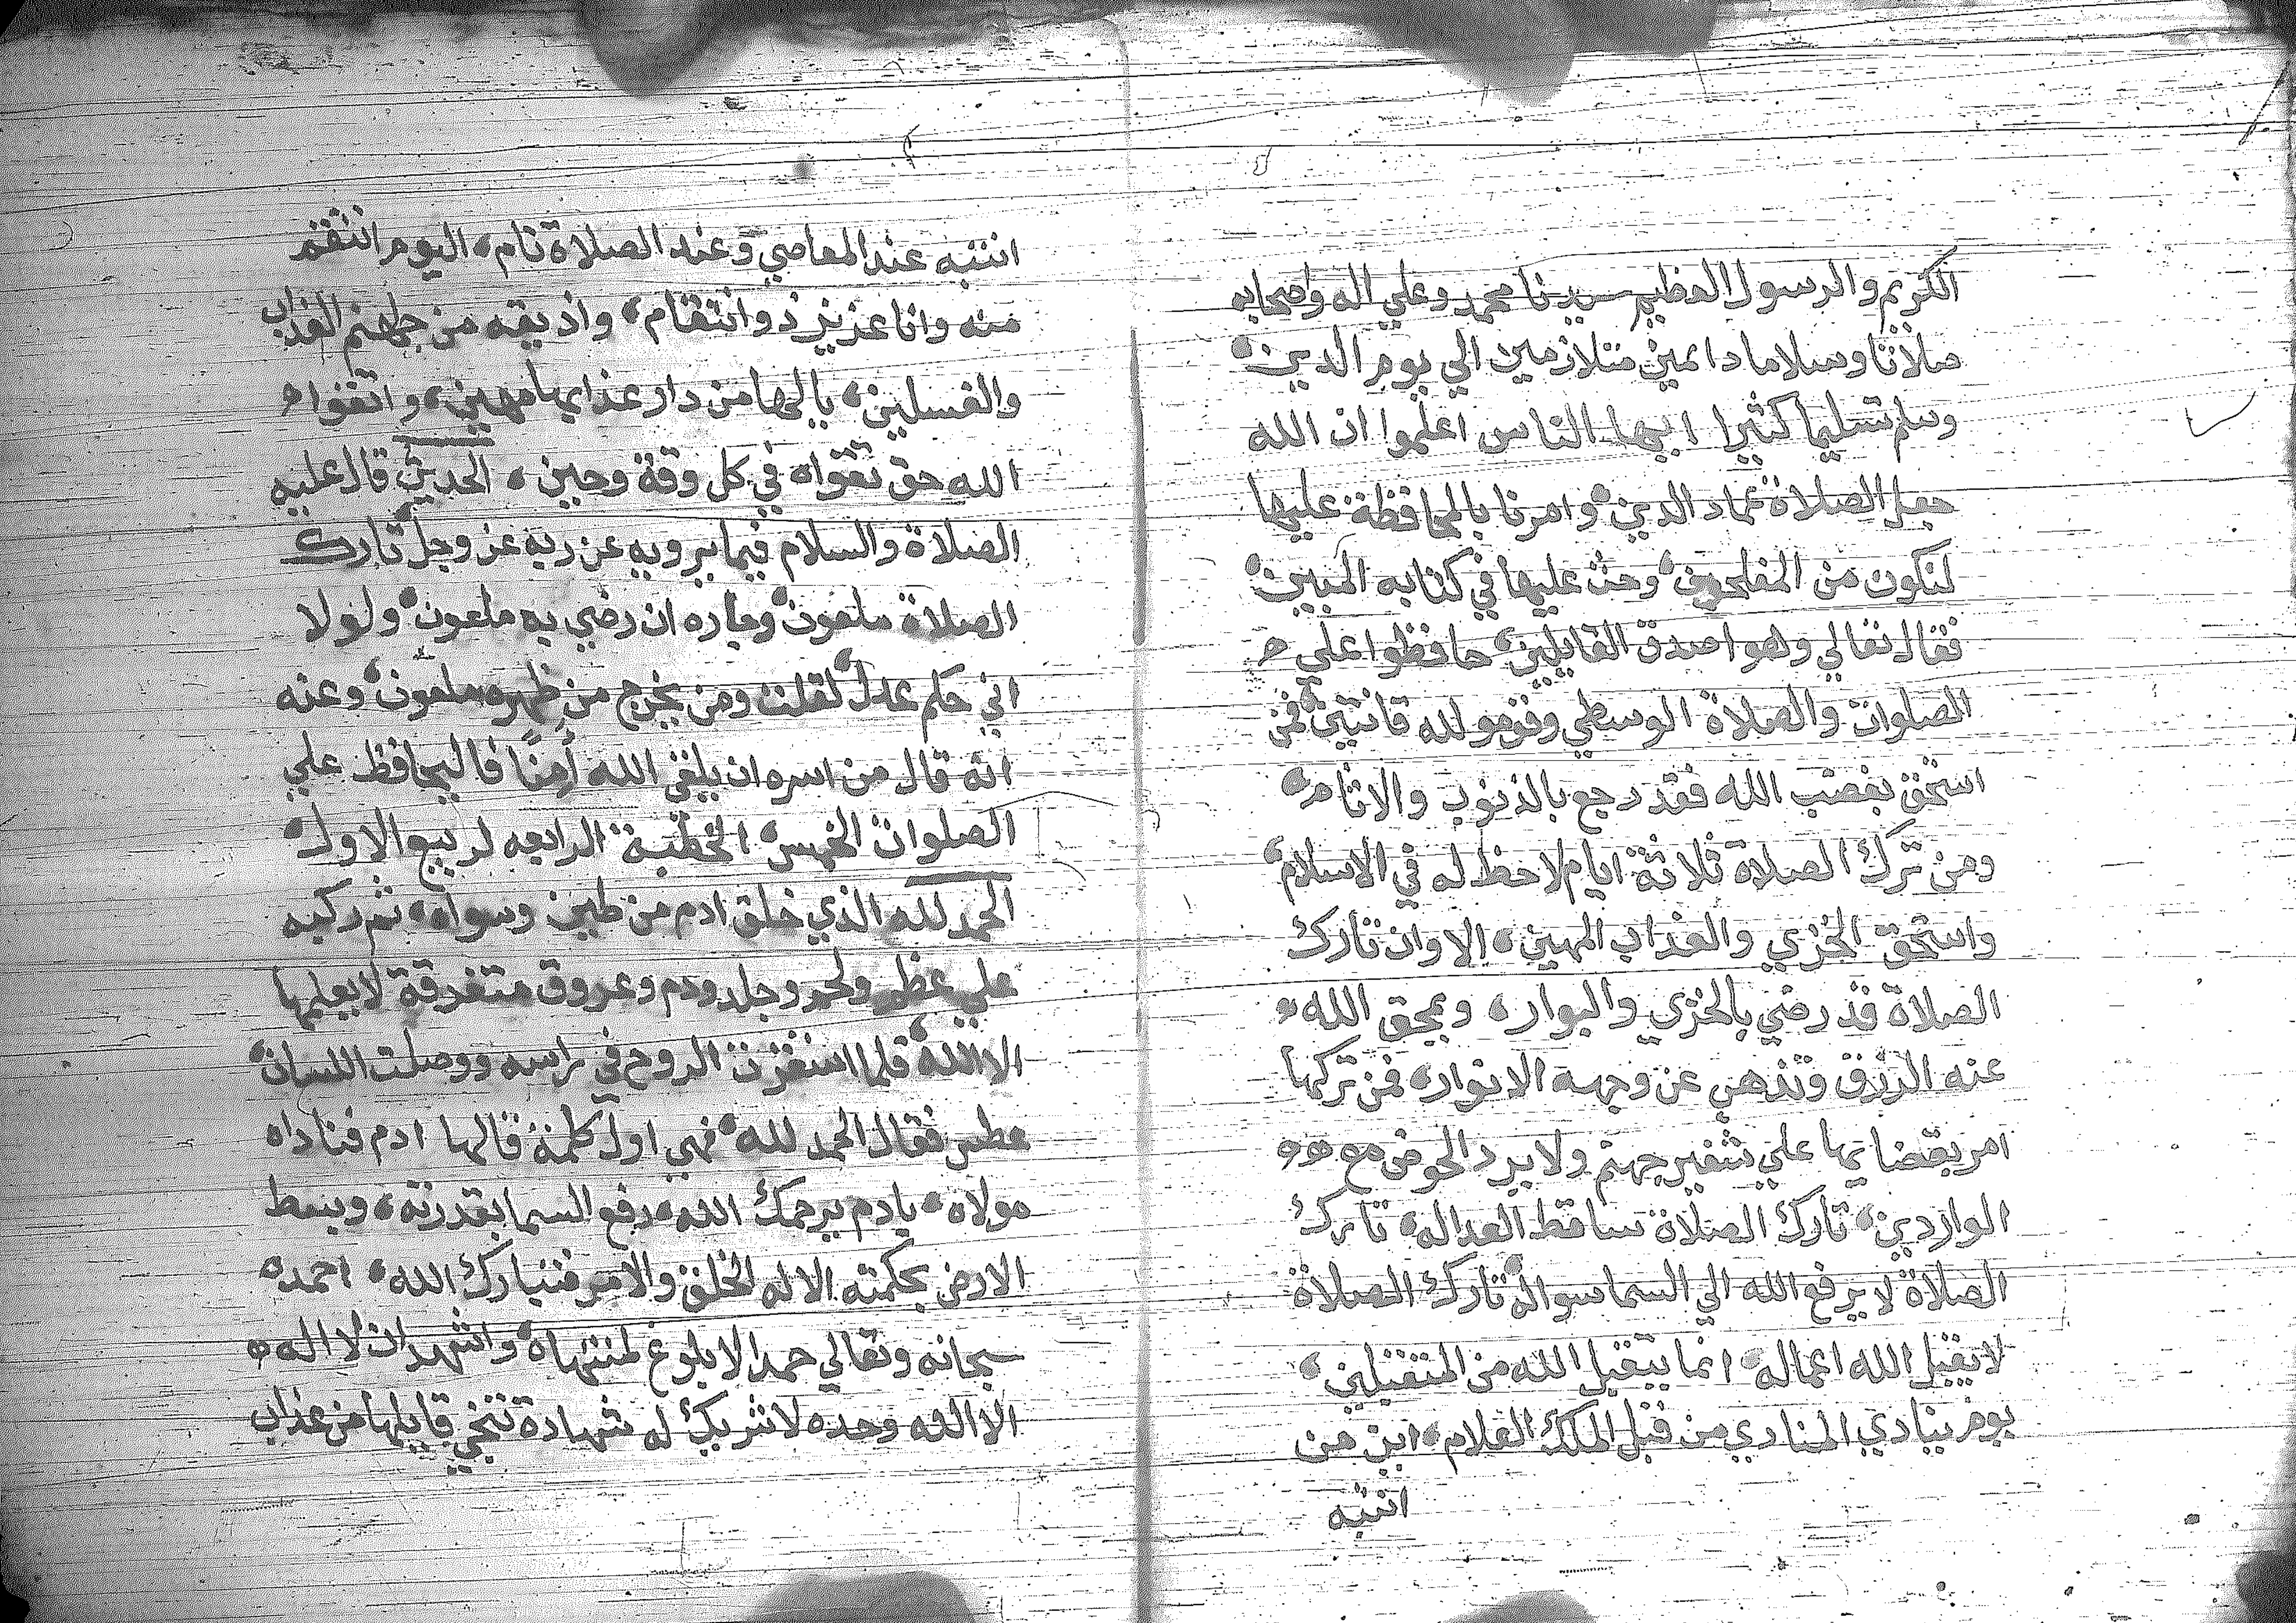 الكريم والرسول العظيم سيدنا محمد وعلي اله واصحابه
صلاتا وسلاما دايمين متلازمين الي يوم الدين
وسلم تسليما كثيرا ايها الناس اعلموا ان الله
جعل الصلاة عماد الدين وامرنا بالمحافظة عليها
لنكون من المفلحين وحث عليها في كتابه المبين
فقال تعالي وهو اصدق القايلين حافظوا علي
الصلوات والصلاة الوسطي وقومو لله قانتين فمن
استحق بغضب الله فقد رجع بالذنوب والاثام
ومن ترك الصلاة ثلاثة ايام لاحظ له في الاسلام
واستحق الخزي والعذاب المهين الا وان تارك
الصلاة قد رضي بالخزي والبوار ويمحق الله
عنه الرزق وتذهب عن وجهه الانوار فمن تركها
امر بقضايها علي شفير جهنم ولا يرد الحوض مع
الواردين تارك الصلاة ساقط العداله تارك
الصلاة لا يرفع الله الي السما سواله تارك الصلاة
لا يقبل الله اعماله انما يتقبل الله من المتقبلين
يوم ينادي المنادي من قبل الملك العلام اين من
انتبه
انتبه عند المعاصي وعند الصلاة نام اليوم انتقم
منه وانا عزيز ذو انتقام واذيقه من جهنم العذاب
والغسلين يالها من دار عذابها مهين واتقوا
الله حق تقواه في كل وقة وحين الحديث قال عليه
الصلاة والسلام فيما يرويه عن ربه عز وجل تارك
الصلاة ملعون وجاره ان رضي به ملعون ولولا
اني حكم عدل لقلت ومن يخرج من ظهره ملعون وعنه
انه قال من اسره ان يلقي الله أمنًا فاليحافظ علي
الصلوات الخمس الخطبة الرابعه لربيع الاول
الحمد لله الذي خلق ادم من طين وسواه ثم ركبه
علي عظم ولحم وجلد ودم وعروق متفرقة لا يعلمها
الا الله فلما استقرت الروح في راسه ووصلت اللسان
عطس فقال الحمد لله فهي اول كلمة قالها ادم فناداه
مولاه يادم يرحمك الله رفع السما بقدرته وبسط
الارض بحكمته الا له الخلق والامر فتبارك الله احمده
سبحانه وتعالي حمدا لا بلوغ لمنتهاه واشهد ان لا اله
الا الله وحده لا شريك له شهادة تنجي قايلها من عذاب